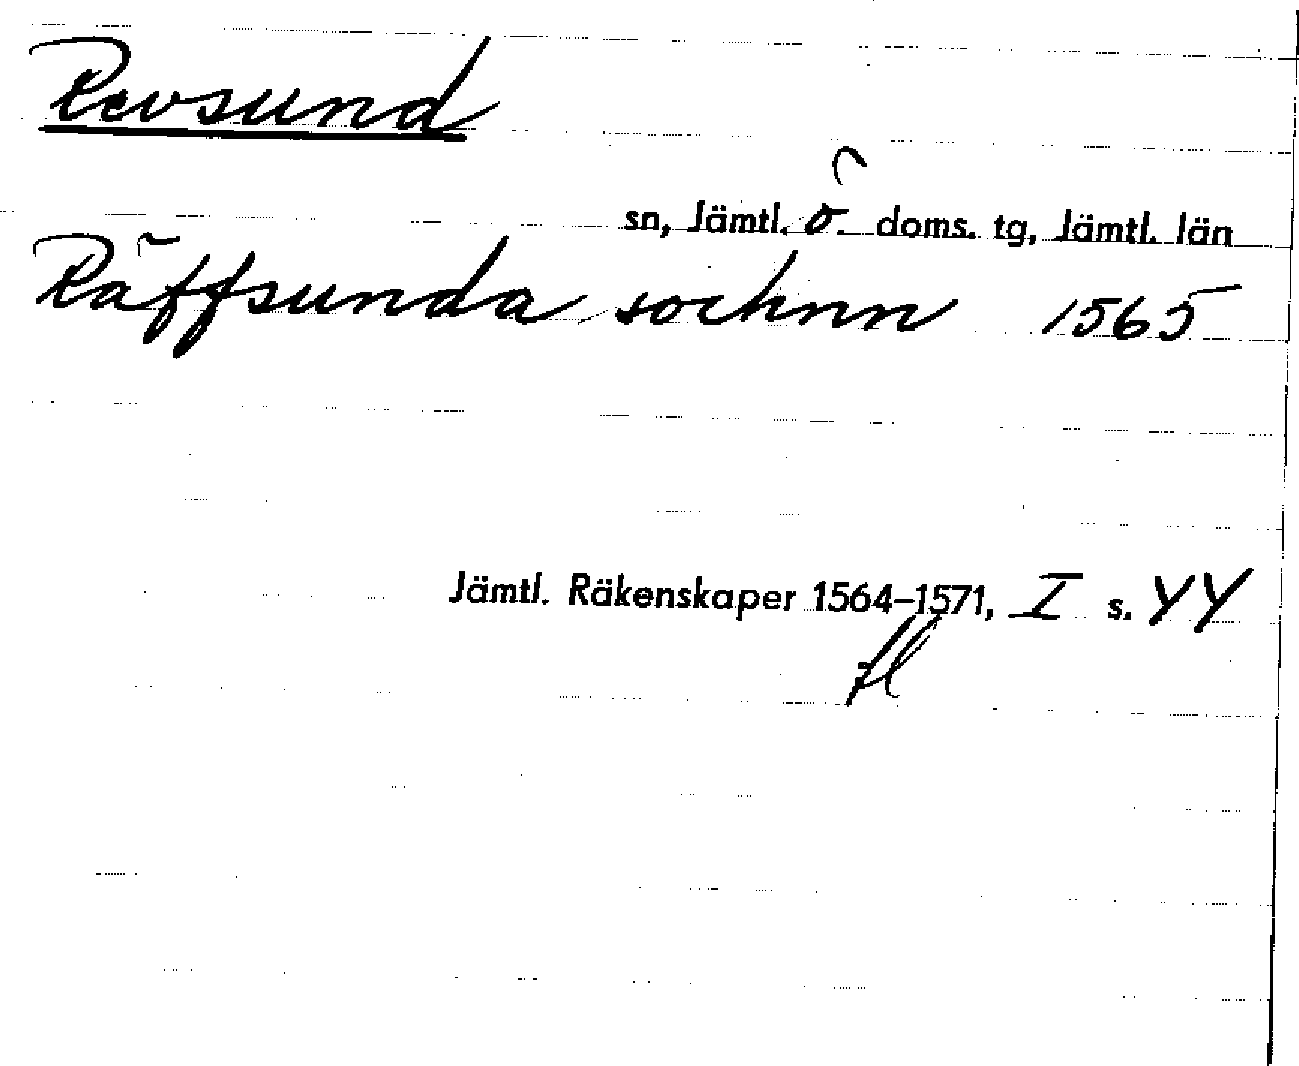 Revsund
sn, Jämtl. ö. doms. tg, Jämtl. län
Räffsunda sochnn 1565
Jämtl. Räkenskaper 1564–1571, I s. 44